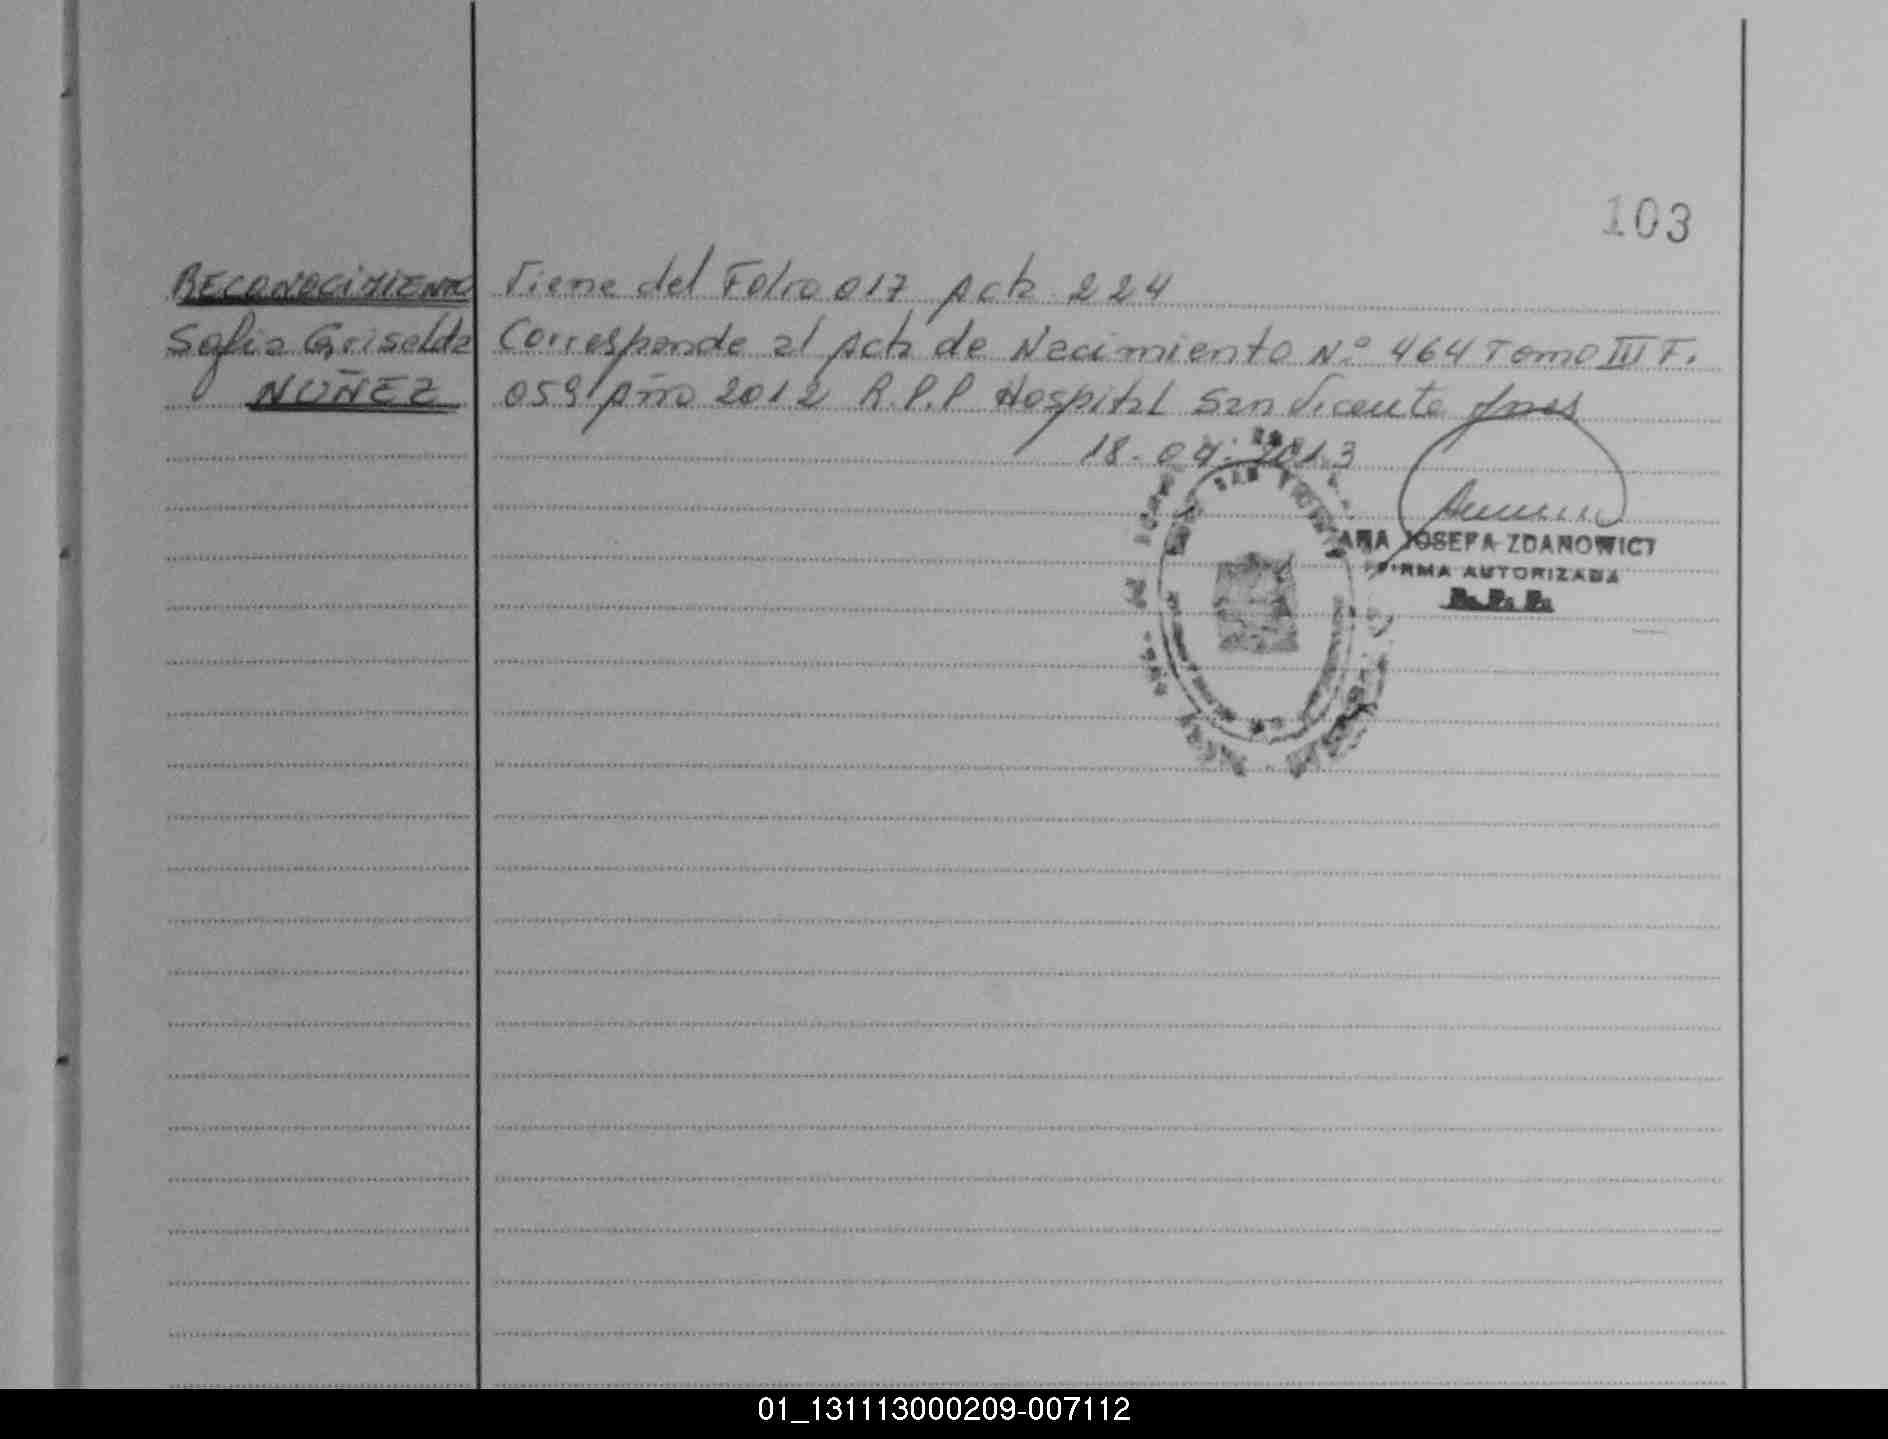 103
RECONOCIMIENTO Viene del Folio 017 Acta 224
Sofia Griselda Corresponde al Acta de Nacimiento Nº 464 Tomo III F.
NUÑEZ 059 Año 2012 R.P.P Hospital San Vicente
18-04-2013
SAN
ANA JOSEFA ZDANOWICZ
FIRMA AUTORIZADA
R. P. P.
01_131113000209-007112